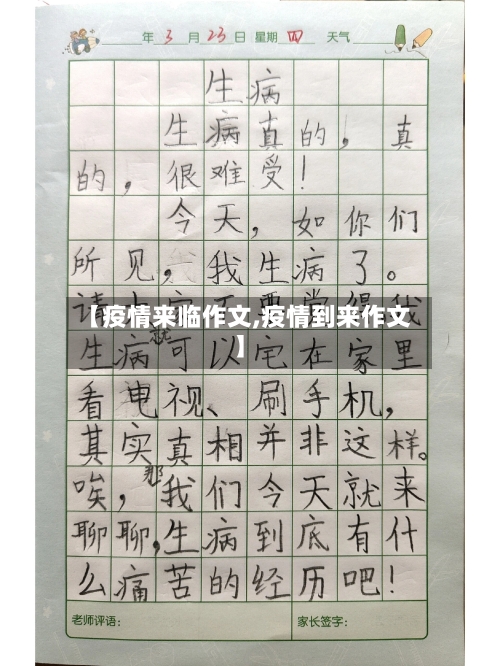 年 3 月 23 日 星期 四 天气
生病
生病真的，真
的，很难受！
今天，如你们
所见，我生病了。
【疫情来临作文,疫情到来作文
】
生病就可以宅在家里
看电视、刷手机，
其实真相并非这样。
唉，那我们今天就来
聊聊，生病到底有什
么痛苦的经历吧！
老师评语：
家长签字：